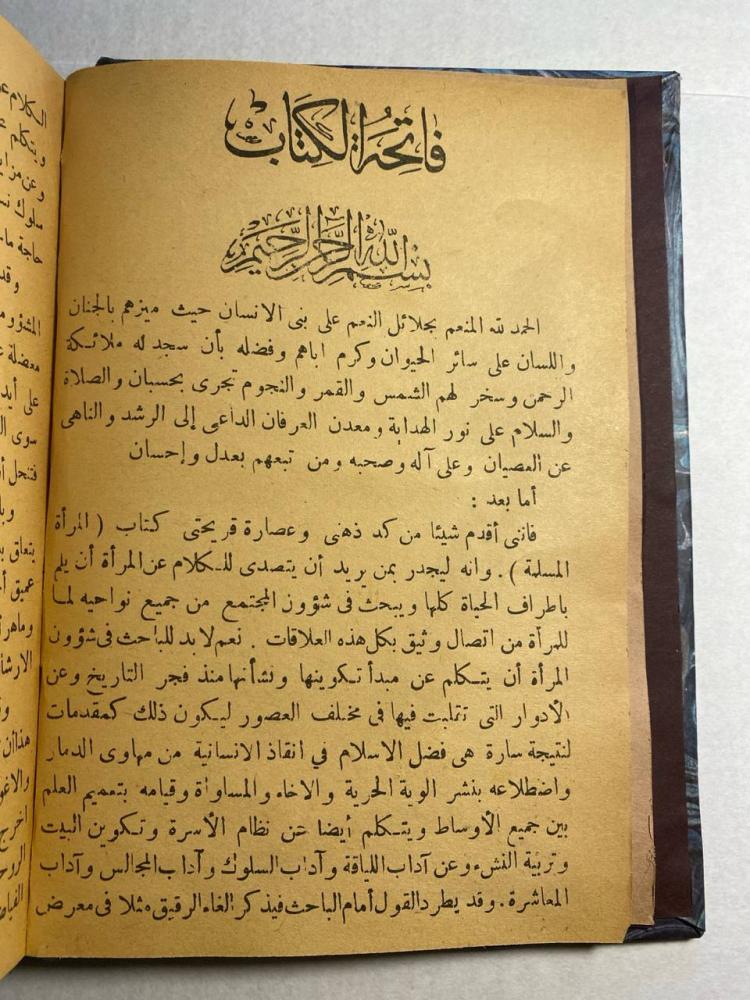 فاتحة الكتاب
بسم الله الرحمن الرحيم
الحمد لله المنعم بجلائل النعم على بنى الانسان حيث ميزهم بالجنان
واللسان على سائر الحيوان وكرم اباهم وفضله بأن سجد له ملائكة
الرحمن وسخر لهم الشمس والقمر والنجوم تجرى بحسبان والصلاة
والسلام على نور الهداية ومعدن العرفان الداعى إلى الرشد والناهى
عن العصيان وعلى آله وصحبه ومن تبعهم بعدل وإحسان
أما بعد :
فاننى أقدم شيئا من كد ذهنى وعصارة قريحتى كتاب ( المرأة
المسلمة ) . وانه ليجدر بمن يريد أن يتصدى للكلام عن المرأة أن يلم
باطراف الحياة كلها ويبحث فى شؤون المجتمع من جميع نواحيه لما
للمرأة من اتصال وثيق بكل هذه العلاقات . نعم لابد للباحث فى شؤون
المرأة أن يتكلم عن مبدأ تكوينها ونشأتها منذ فجر التاريخ وعن
الأدوار التى تقلبت فيها فى مختلف العصور ليكون ذلك كمقدمات
لنتيجة سارة هى فضل الاسلام في انقاذ الانسانية من مهاوى الدمار
واضطلاعه بنشر الوية الحرية والاخاء والمساواة وقيامه بتعميم العلم
بين جميع الأوساط ويتكلم أيضا عن نظام الأسرة وتكوين البيت
وتربية النشء وعن آداب اللياقة وآداب السلوك وآداب المجالس وآداب
المعاشرة . وقد يطرد القول أمام الباحث فيذكر الغاء الرقيق مثلا فى معرض
الكلام
ويتكلم
وعن مزا
سلوك
حاجة
وقد
معضلة
على أيد
سوى
وبا
يتعلق
عميق
وماهر
هذا ان
اخرج
الروح